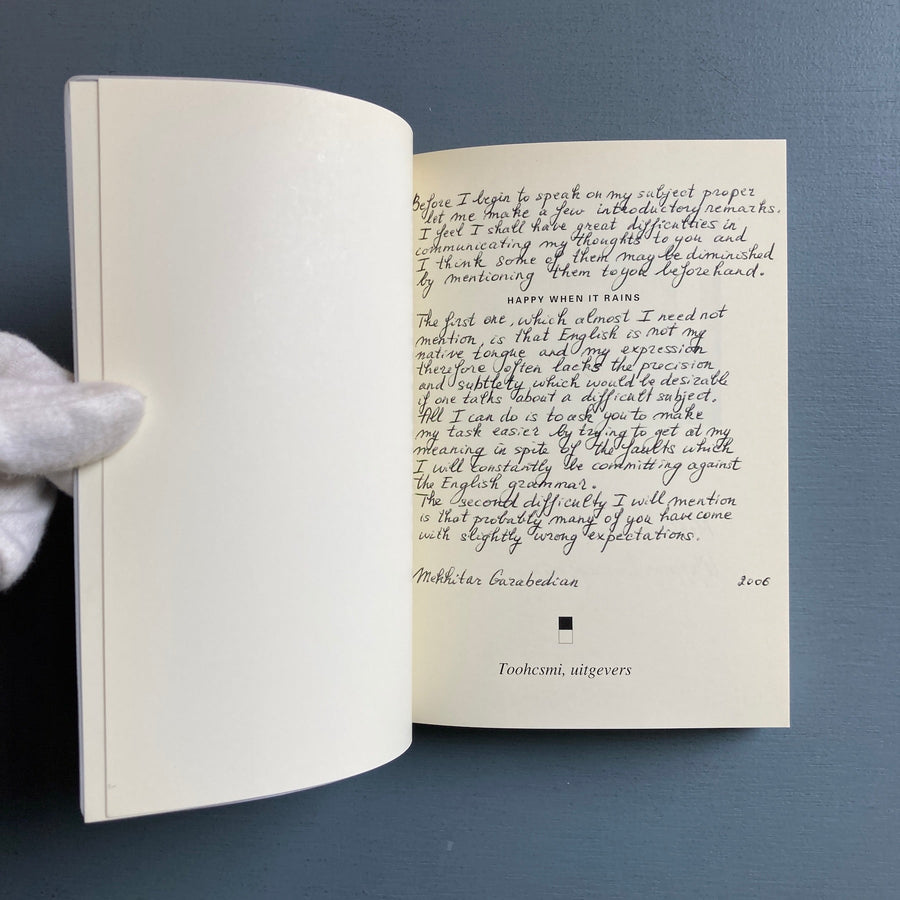 Before I begin to speak on my subject proper
let me make a few introductory remarks.
I feel I shall have great difficulties in
communicating my thoughts to you and
I think some of them may be diminished
by mentioning them to you beforehand.
HAPPY WHEN IT RAINS
The first one, which almost I need not
mention, is that English is not my
native tongue and my expression
therefore often lacks the precision
and subtlety which would be desirable
if one talks about a difficult subject.
All I can do is to ask you to make
my task easier by trying to get at my
meaning in spite of the faults which
I will constantly be committing against
the English grammar.
The second difficulty I will mention
is that probably many of you have come
with slightly wrong expectations.
Mekhitar Garabedian 2006
Toohcsmi, uitgevers